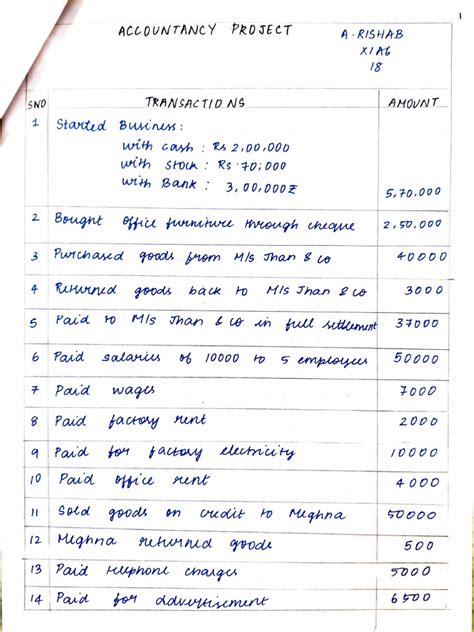 1
ACCOUNTANCY PROJECT
A. RISHAB
XI A6
18
SNO TRANSACTIONS AMOUNT
1 Started Business:
with cash : Rs 2,00,000
with stock : Rs 70,000
with Bank : 3,00,000₹ 5,70,000
2 Bought office furniture through cheque 2,50,000
3 Purchased goods from M/s Jhan & co 40000
4 Returned goods back to M/s Jhan & co 3000
5 Paid to M/s Jhan & co in full settlement 37000
6 Paid salaries of 10000 to 5 employees 50000
7 Paid wages 7000
8 Paid factory rent 2000
9 Paid for factory electricity 10000
10 Paid office rent 4000
11 Sold goods on credit to Meghna 50000
12 Meghna returned goods 500
13 Paid telephone charges 5000
14 Paid for advertisement 6500